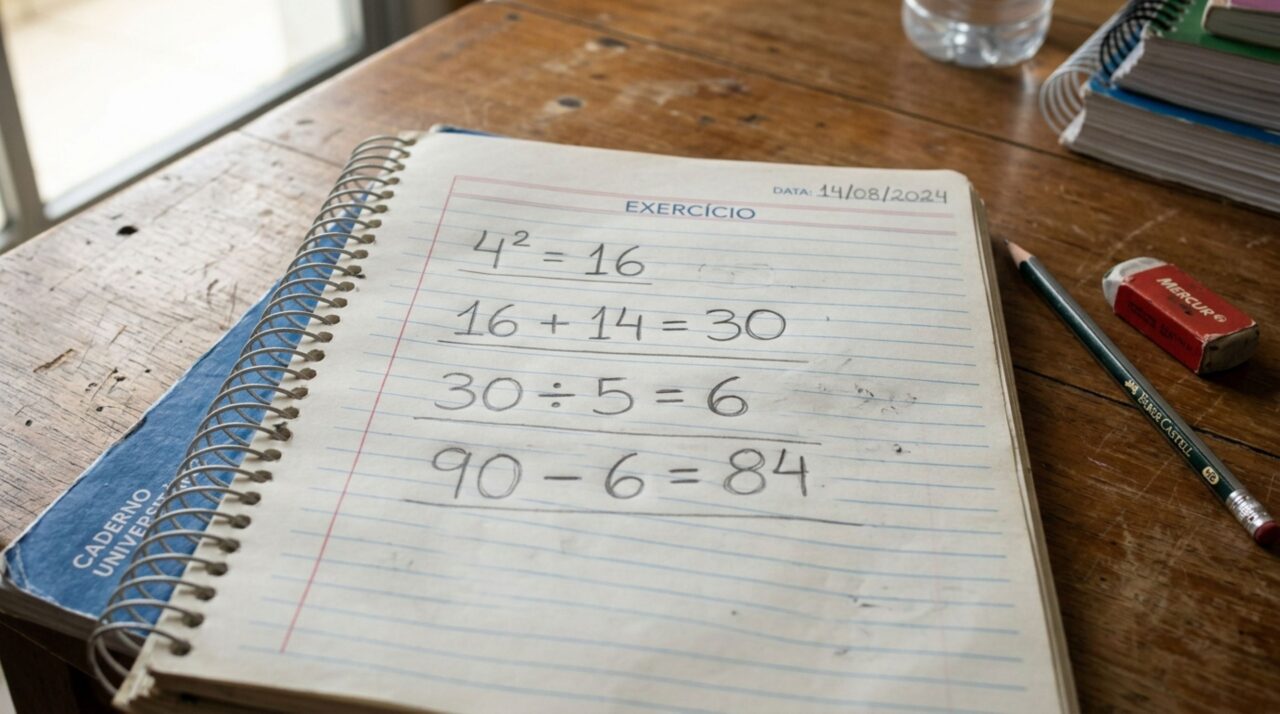 DATA: 14/08/2024
EXERCÍCIO
4² = 16
16 + 14 = 30
30 ÷ 5 = 6
90 − 6 = 84
CADERNO
MERCUR
FABER CASTELL